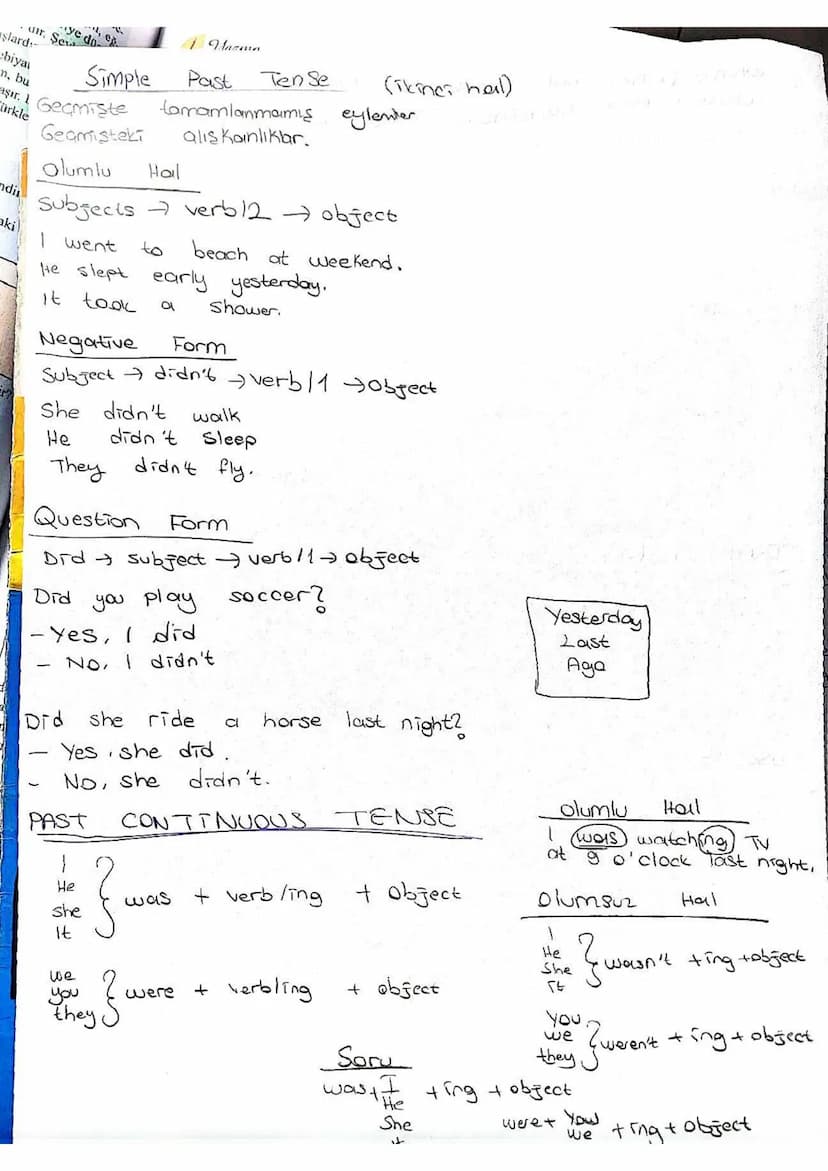 Simple Past Tense (ikinci hal)
Geçmişte tamamlanmamış eylemler
Geçmişteki alışkanlıklar.
Olumlu Hal
Subjects → verb/2 → object
I went to beach at weekend.
He slept early yesterday.
It took a shower.
Negative Form
Subject → didn't → verb/1 → object
She didn't walk
He didn't sleep
They didn't fly.
Question Form
Did → subject → verb/1 → object
Did you play soccer?
- Yes, I did
- No, I didn't
Yesterday
Last
Ago
Did she ride a horse last night?
- Yes, she did.
- No, she didn't.
PAST CONTINUOUS TENSE
I
He
she
It
} was + verb/ing + object
we
you
they
} were + verb/ing + object
Olumlu Hal
I was watching TV
at 9 o'clock last night.
Olumsuz Hal
I
He
She
It
} wasn't + ing + object
You
we
they
} weren't + ing + object
Soru
was + I + ing + object
He
She
were + you + ing + object
we